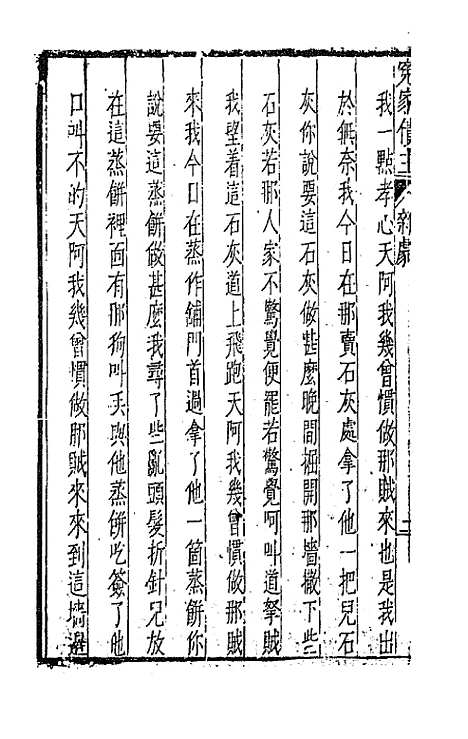 冤家債主 雜劇 二
我一點孝心天阿我幾曾慣做那賊來也是我出
於無奈我今日在那賣石灰處拿了他一把兒石
灰你說要這石灰做甚麼晚間掘開那墻撇下些
石灰若那人家不驚覺便罷若驚覺呵叫道拏賊
我望着這石灰道上飛跑天阿我幾曾慣做那賊
來我今日在蒸作舖門首過拿了他一箇蒸餅你
說要這蒸餅做甚麼我尋了些亂頭髮折針兒放
在這蒸餅裡面有那狗叫丟與他蒸餅吃簽了他
口叫不的天阿我幾曾慣做那賊來來到這墻邊